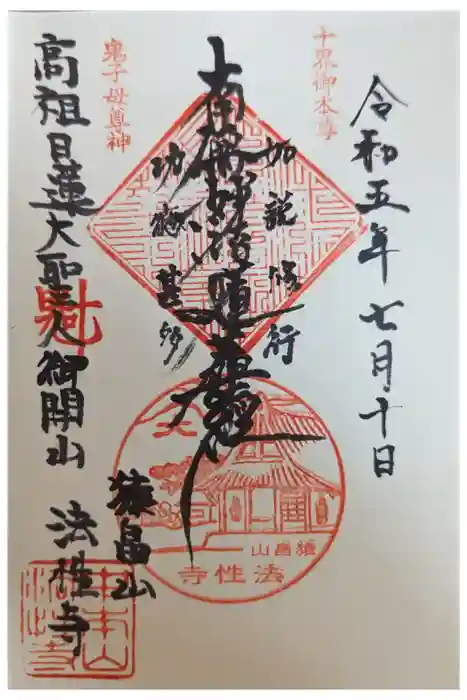 令和五年七月十日
十界御本尊
如説修行
南無妙法蓮華経
功徳甚多
鬼子母尊神
高祖日蓮大聖人御開山
猿畠山
法性寺
山畠猿
寺性法